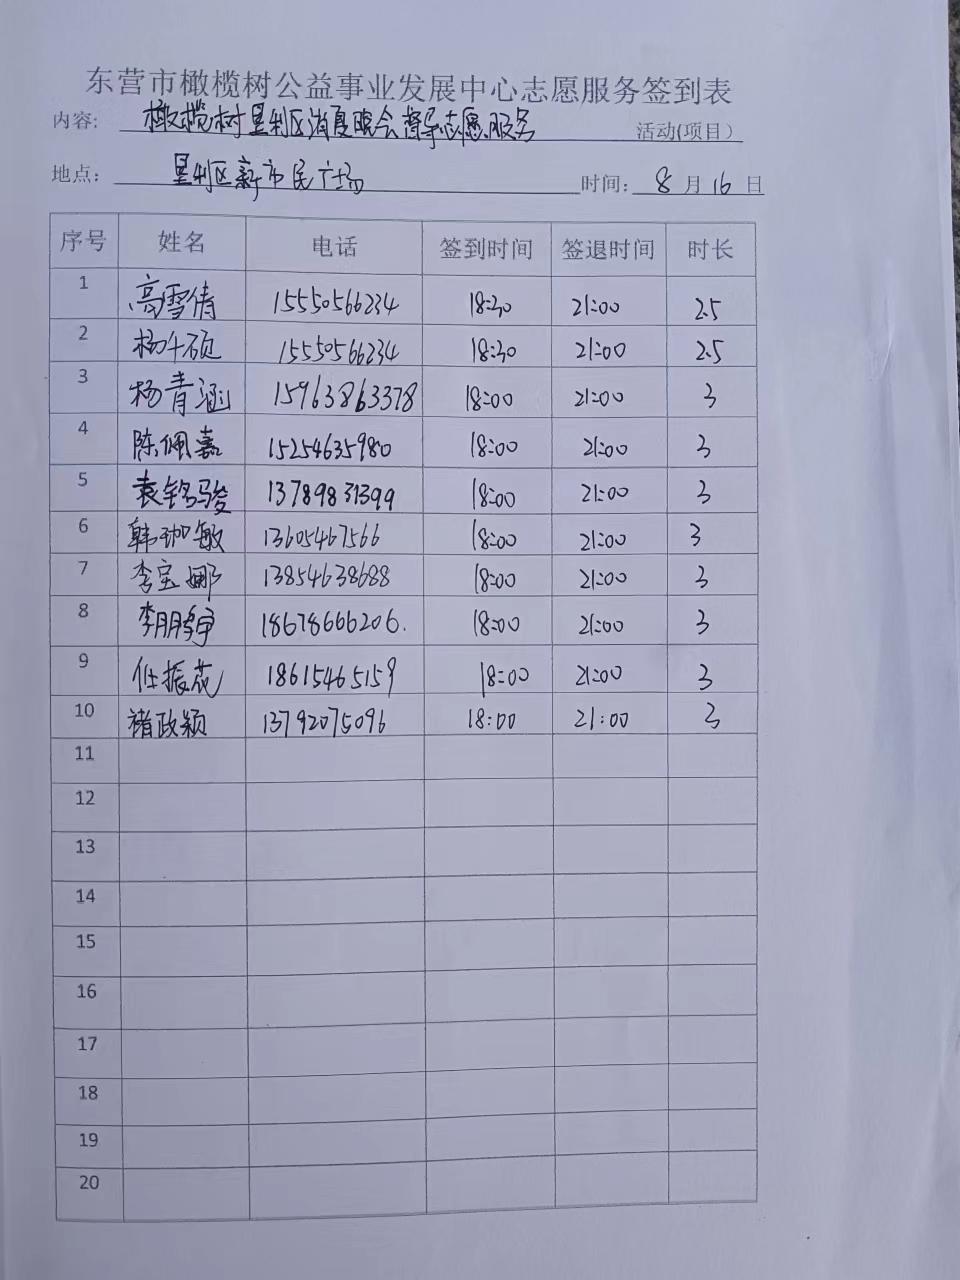 东营市橄榄树公益事业发展中心志愿服务签到表
内容: 橄榄树垦利区消夏晚会督导志愿服务 活动(项目)
地点: 垦利区新市民广场 时间: 8 月 16 日
序号 姓名 电话 签到时间 签退时间 时长
1 高雪倩 15550566234 18:30 21:00 2.5
2 杨千硕 15550566234 18:30 21:00 2.5
3 杨青涵 15963863378 18:00 21:00 3
4 陈佩嘉 15254635980 18:00 21:00 3
5 袁铭骏 13789831399 18:00 21:00 3
6 韩珈敏 13605467566 18:00 21:00 3
7 李宝娜 13854638688 18:00 21:00 3
8 李鹏宇 18678666206. 18:00 21:00 3
9 任振花 18615465159 18:00 21:00 3
10 褚政颖 13792075096 18:00 21:00 3
11
12
13
14
15
16
17
18
19
20